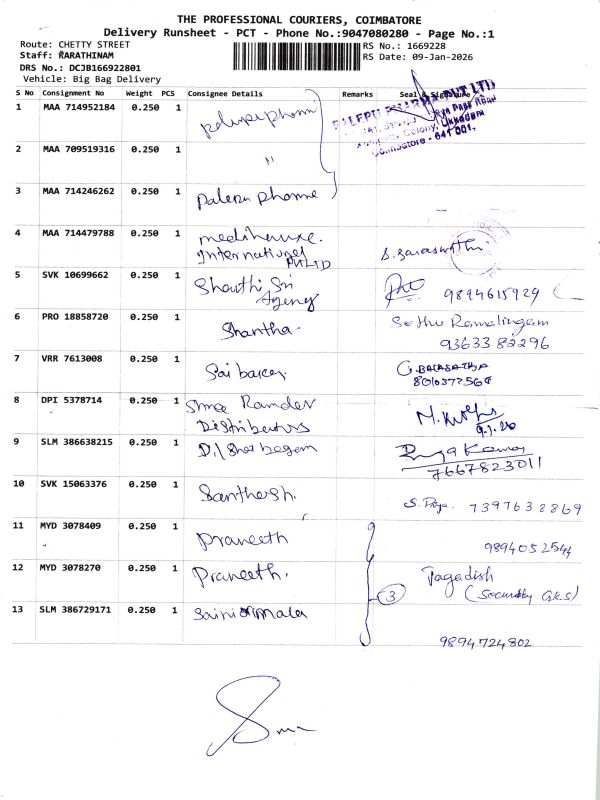 THE PROFESSIONAL COURIERS, COIMBATORE
Delivery Runsheet - PCT - Phone No.:9047080280 - Page No.:1
Route: CHETTY STREET
RS No.: 1669228
Staff: RARATHINAM
RS Date: 09-Jan-2026
DRS No.: DCJB166922801
Vehicle: Big Bag Delivery
S No Consignment No Weight PCS Consignee Details Remarks Seal & Signature
1 MAA 714952184 0.250 1
PALEPU PHARMA PVT LTD
Coimbatore - 641 001.
2 MAA 709519316 0.250 1 "
3 MAA 714246262 0.250 1 Palepu Pharma
4 MAA 714479788 0.250 1 
International
PVT LTD
S. Saraswathi
5 SVK 10699662 0.250 1 Shanthi Sri
Agency
9894615929
6 PRO 18858720 0.250 1 Shantha.
Sethu Ramalingam
9363382296
7 VRR 7613008 0.250 1 Sai
8 DPI 5378714 0.250 1 Shree Ramdev
Distributors
9.1.26
9 SLM 386638215 0.250 1
7667823011
10 SVK 15063376 0.250 1 Santhosh.
S. Priya. 7397638869
11 MYD 3078409 0.250 1 Praneeth
9894052544
12 MYD 3078270 0.250 1 Praneeth.
3
Jagadish
(Security G.K.S)
13 SLM 386729171 0.250 1
9894724802